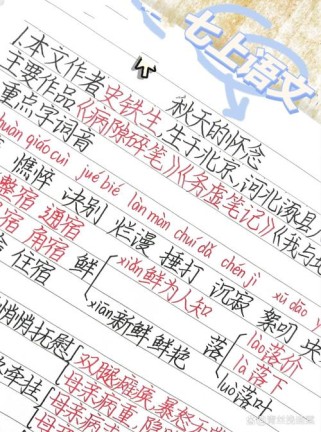 七上语文
秋天的怀念
1.本文作者史铁生,生于北京,河北涿县人
主要作品《病隙碎笔》《务虚笔记》《我与地
重点字词音
qiáo cuì jué bié làn màn chuí dǎ chén jì xù dāo
憔悴 诀别 烂漫 捶打 沉寂 絮叨
整宿 通宿
宿 角宿
住宿
鲜 xiǎn鲜为人知
xiān新鲜 鲜艳
落 lào落价
là落下
luò落叶
悄悄 抚慰
牵挂
双腿瘫痪,暴怒无常
母亲病重,隐
母亲